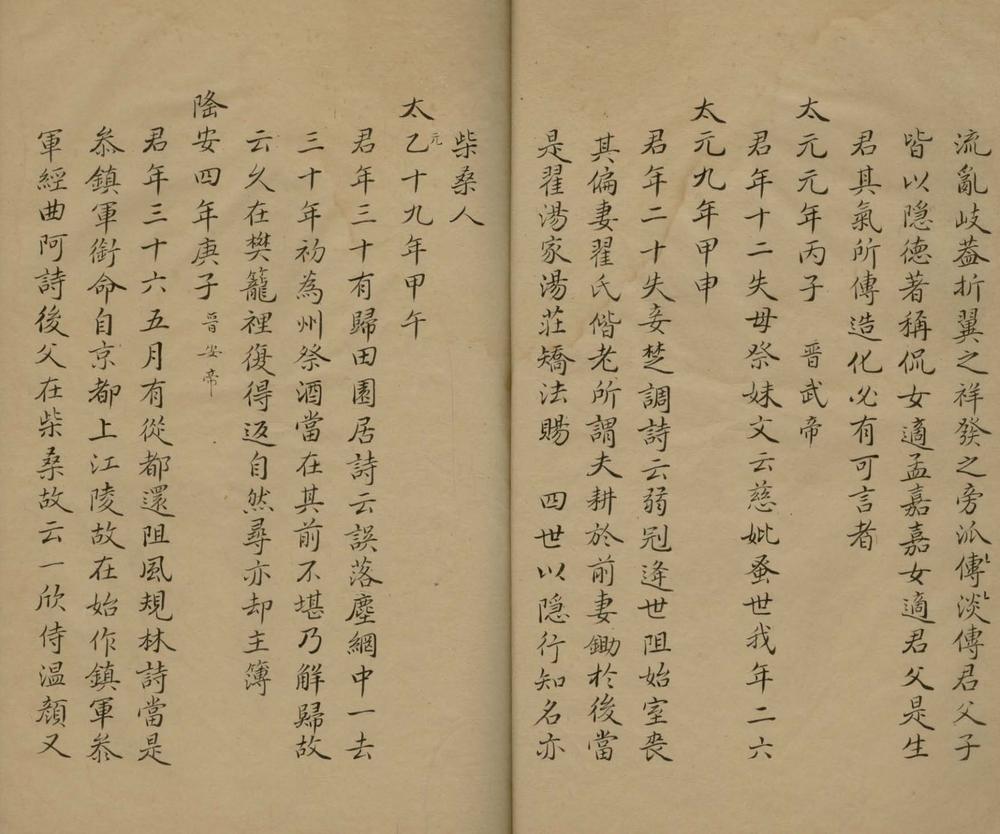 流亂岐葢折翼之祥發之旁派傳淡傳君父子
皆以隱德著稱侃女適孟嘉嘉女適君父是生
君其氣所傳造化必有可言者
太元元年丙子 晋武帝
君年十二失母祭妹文云慈妣蚤世我年二六
太元九年甲申
君年二十失妾楚調詩云弱冠逄世阻始室喪
其偏妻翟氏偕老所謂夫耕於前妻鋤於後當
是翟湯家湯莊矯法賜 四世以隱行知名亦
柴桑人
太元乙十九年甲午
君年三十有歸田園居詩云誤落塵網中一去
三十年初為州祭酒當在其前不堪乃解歸故
云久在樊籠裡復得返自然尋亦却主簿
隆安四年庚子 晋安帝
君年三十六五月有從都還阻風規林詩當是
叅鎮軍銜命自京都上江陵故在始作鎮軍叅
軍經曲阿詩後父在柴桑故云一欣侍温顏又